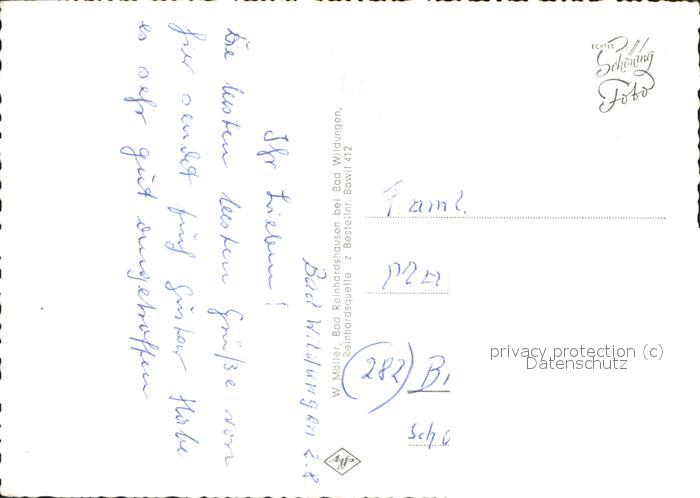 Bad Wildungen 2.8
Ihr Lieben!
Die besten besten Grüße von
hier sendet Habe
es sehr gut angetroffen
W. Möller, Bad Reinhardshausen bei Bad Wildungen,
Reinhardsquelle z Bestellnr. Bawil 412
ECHTES
Schöning
Foto
Faml.
(282)
Agfa
privacy protection (c)
Datenschutz